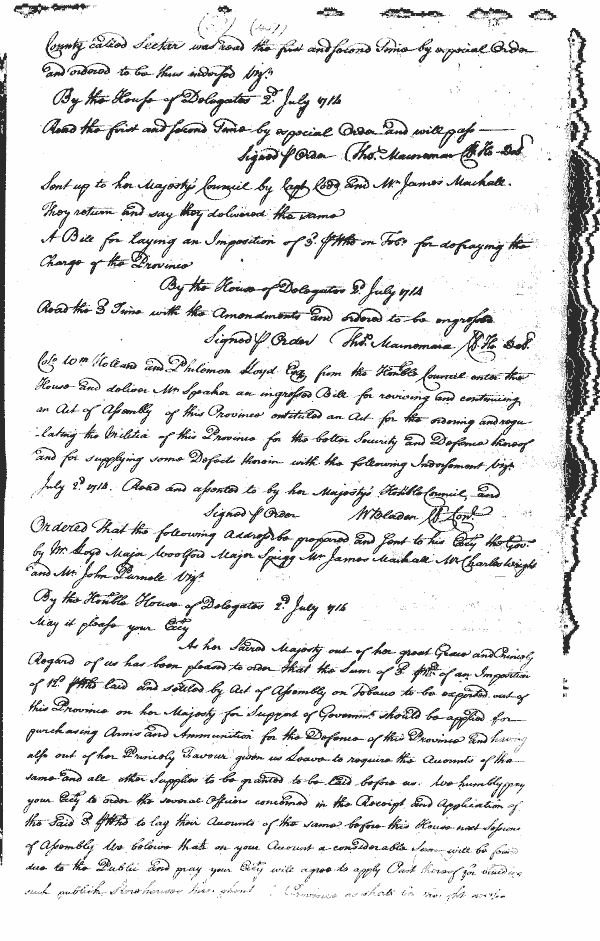 County called Seeker was read the first and second Time by especial Order
and ordered to be thus endorsed Vizt.
By the House of Delegates 2d. July 1714
Read the first and second Time by especial Order and will pass
Signed p Order Thos. Macnemara Cl. Ho. Del.
Sent up to her Majestys Council by Capt Codd and Mr James Mackall.
They return and say they delivered the same
A Bill for laying an Imposition of 3d. p Hhd on Tobo. for defraying the
Charge of the Province
By the House of Delegates 2d. July 1714
Read the 3d Time with the Amendments and ordered to be engrossed
Signed p Order Thos. Macnemara Cl. Ho. Del.
Colo. Wm Holland and Philemon Lloyd Esq from the Honble Council enter the
House and deliver Mr Speaker an ingrossed Bill for reviving and continuing
an Act of Assembly of this Province entituled an Act for the ordering and regu
-lating the Militia of this Province for the better Security and Defence thereof
and for supplying some Defects therein with the following Indorsement Vizt.
July 2d. 1714. Read and assented to by her Majestys Honble Council, and
Signed p Order W Bladen Cl. Con.
Ordered that the following Address be prepared and sent to his Excy the Govr.
by Mr. Lloyd Major Woolford Major Sprigg Mr James Mackall Mr Charles Wright
and Mr. John Purnell Vizt.
By the Honble House of Delegates 2d. July 1714
May it please your Excy
As her Sacred Majesty out of her great Grace and Princely
Regard of us has been pleased to order that the Sum of 3d. p Hhd. of an Imposition
of 12d. p Hhd laid and settled by Act of Assembly on Tobacco to be exported out of
this Province on her Majesty for Support of Governmt. should be applied for
purchasing Arms and Ammunition for the Defence of this Province and having
also out of her Princely Favour given us Leave to require the Accounts of the
same and all other Supplies to be granted to be laid before us. We humbly pray
your Excy to order the several Officers concerned in the Receipt and Application of
the said 3d. p Hhd to lay their Accounts of the same before this House next Sessions
of Assembly We believe that on your Account a considerable Sum will be found
due to the Public and pray your Excy will agree to apply Part thereof for
such publick Storehouses Province as shall be